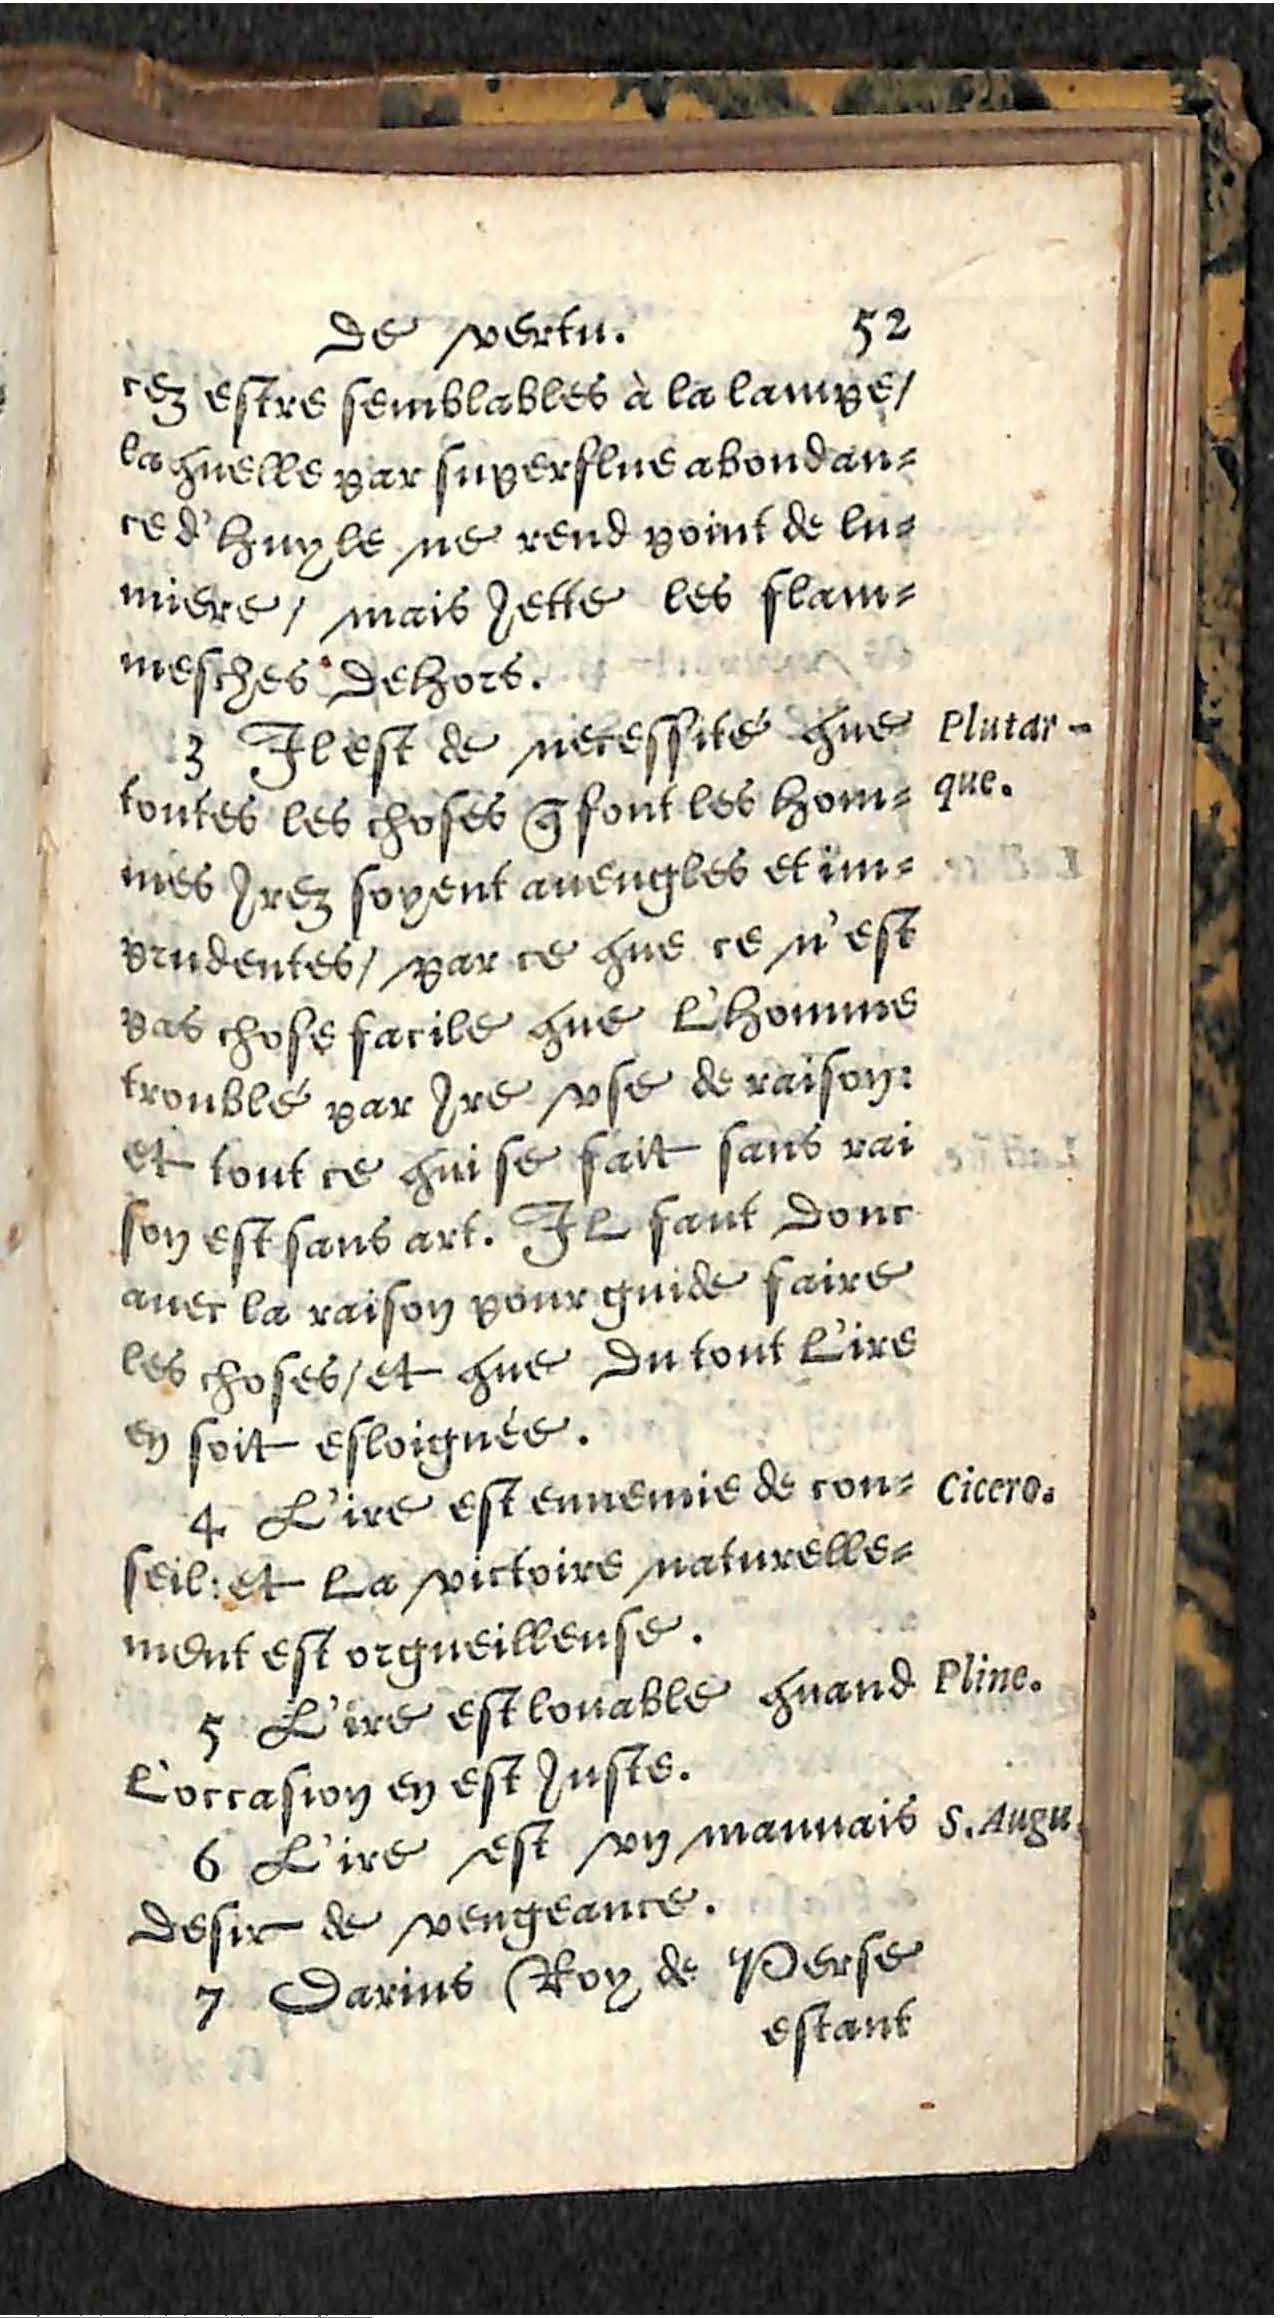 De vertu. 52
cez estre semblables à la lampe/
laquelle par superflue abondan=
ce d'huyle ne rend point de lu=
miere/ mais jette les flam=
mesches dehors.
3 Il est de necessité que Plutar-
toutes les choses q̃ font les hom= que.
mes jrez soyent aueugles et im=
prudentes/ par ce que ce n'est
pas chose facile que l'homme
troublé par jre vse de raison:
et tout ce qui se fait sans rai
son est sans art. Il faut donc
auec la raison pour guide faire
les choses/ et que du tout l'ire
en soit esloignée.
4 L'ire est ennemie de con= Cicero.
seil: et la victoire naturelle=
ment est orgueilleuse.
5 L'ire est louable quand Pline.
l'occasion en est juste.
6 L'ire est vn mauuais S. Augu.
desir de vengeance.
7 Darius Roy de Perse
estant